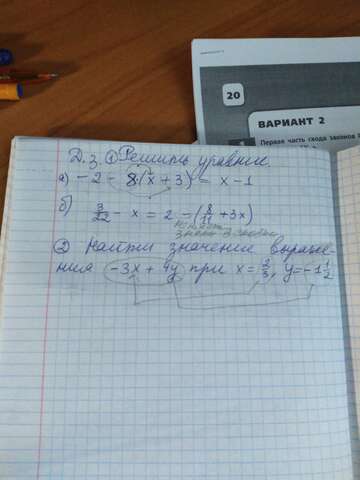 20
ВАРИАНТ 2
Первая часть свода законов
Д.з. ① Решить уравние.
а) - 2 - 8(x + 3) = x - 1
б) 3/22 - x = 2 - (8/11 + 3x)
знаки
② Найти значение выраже-
ния -3x + 4y при x = 2/3, y = -1 1/2